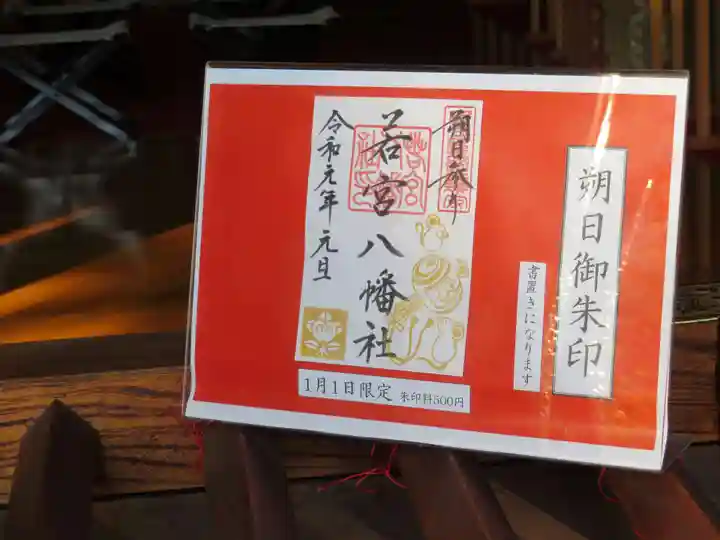 朔日御朱印
書置きになります
朔日参り
若宮八幡社
令和元年 元旦
1月1日限定 朱印料500円